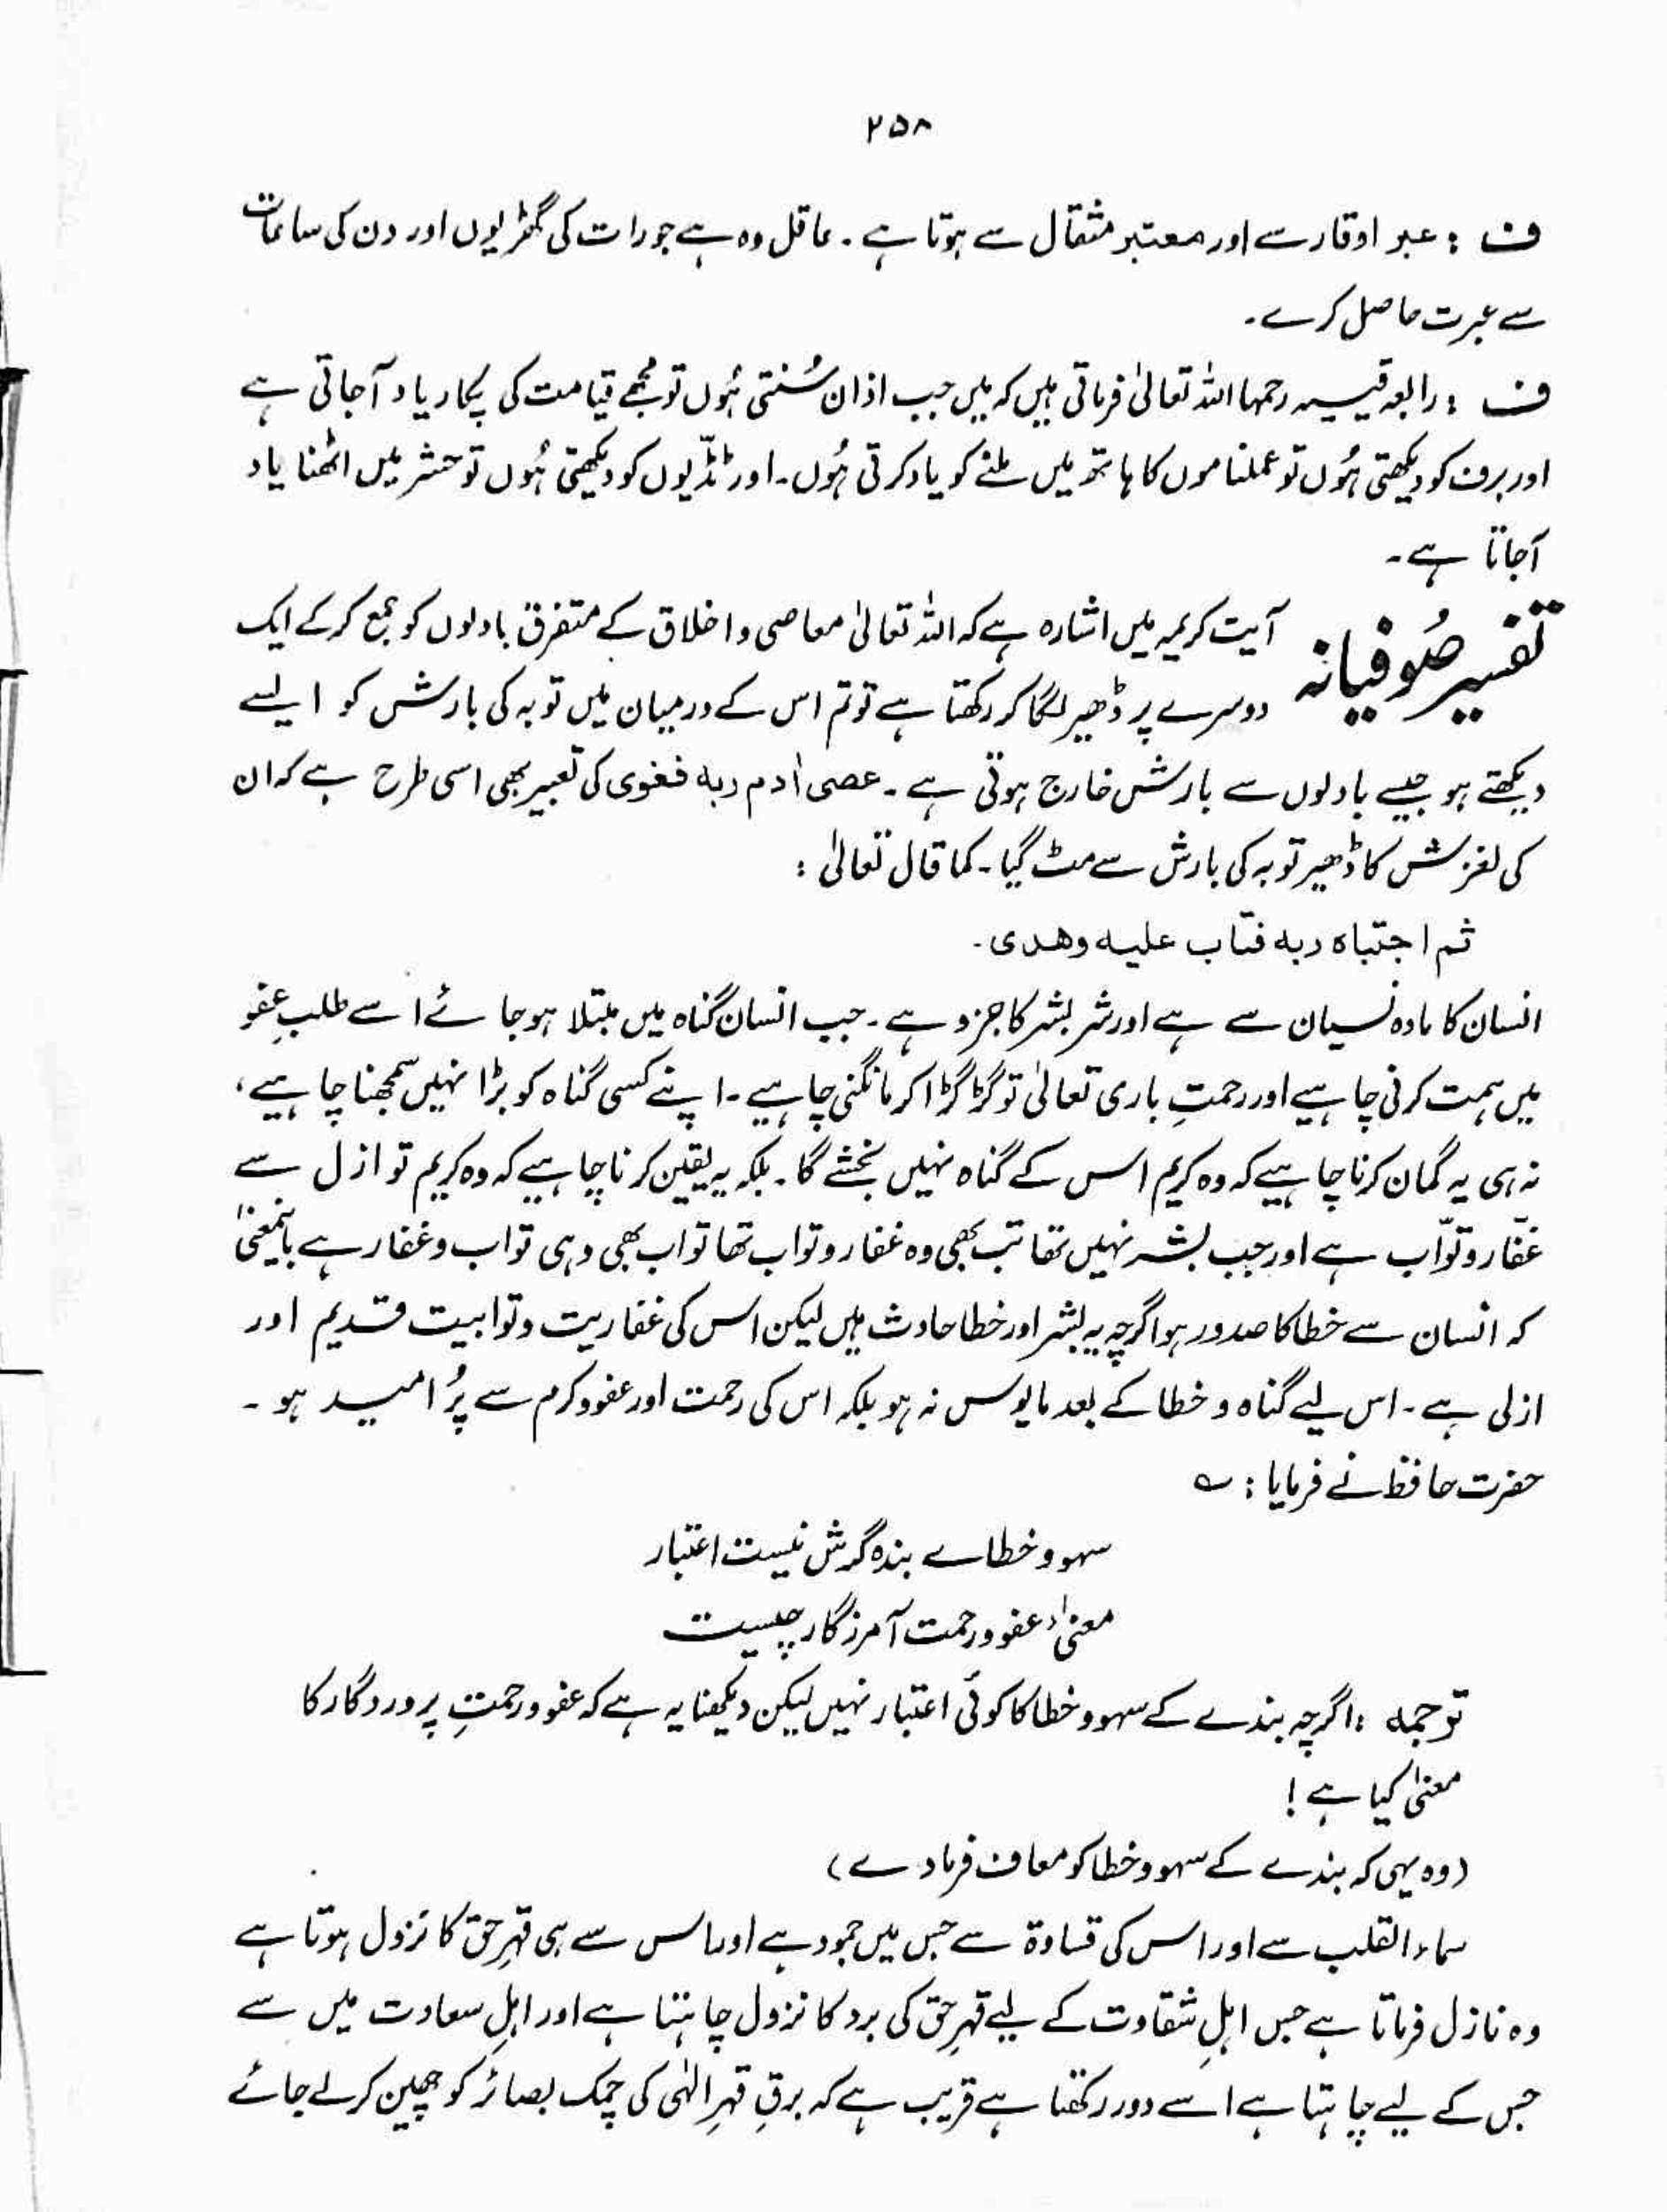 ۲۵۸
ف : عبر اوقار سے اور معتبر مثقال سے ہوتا ہے ۔ عاقل وہ ہے جو رات کی گھڑیوں اور دن کی ساعات
سے عبرت حاصل کرے ۔
ف : رابعہ قیسیہ رحمہا اللہ تعالیٰ فرماتی ہیں کہ میں جب اذان سُنتی ہُوں تو مجھے قیامت کی پکار یاد آجاتی ہے
اور برف کو دیکھتی ہُوں تو عملناموں کا ہاتھ میں ملنے کو یاد کرتی ہُوں ۔ اور ٹڈّیوں کو دیکھتی ہُوں تو حشر میں اٹھنا یاد
آجاتا ہے ۔
تفسیر صُوفیانہ آیت کریمہ میں اشارہ ہے کہ اللہ تعالیٰ معاصی و اخلاق کے متفرق بادلوں کو جمع کر کے ایک
دوسرے پر ڈھیر لگا کر رکھتا ہے تو تم اس کے درمیان میں توبہ کی بارش کو ایسے
دیکھتے ہو جیسے بادلوں سے بارش خارج ہوتی ہے ۔ عصی اٰدم ربه فغوی کی تعبیر بھی اسی طرح ہے کہ ان
کی لغزش کا ڈھیر توبہ کی بارش سے مٹ گیا ۔ کما قال تعالیٰ :
ثم اجتباه ربه فتاب علیه وهدی ۔
انسان کا مادہ نسیان سے ہے اور شر بشر کا جزو ہے ۔ جب انسان گناہ میں مبتلا ہو جائے اسے طلبِ عفو
میں ہمت کرنی چاہیے اور رحمتِ باری تعالیٰ تو گڑگڑا کر مانگنی چاہیے ۔ اپنے کسی گناہ کو بڑا نہیں سمجھنا چاہیے ،
نہ ہی یہ گمان کرنا چاہیے کہ وہ کریم اس کے گناہ نہیں بخشے گا ۔ بلکہ یہ یقین کرنا چاہیے کہ وہ کریم تو ازل سے
غفّار و توّاب ہے اور جب بشر نہیں تھا تب بھی وہ غفار و تواب تھا تو اب بھی وہی تواب و غفار ہے باینمعنیٰ
کہ انسان سے خطا کا صدور ہوا اگرچہ یہ بشر اور خطا حادث ہیں لیکن اس کی غفاریت و توابیت قدیم اور
ازلی ہے ۔ اس لیے گناہ و خطا کے بعد مایوس نہ ہو بلکہ اس کی رحمت اور عفو و کرم سے پُر امید ہو ۔
حضرت حافظ نے فرمایا : ؎
سہو و خطاے بندہ گرش نیست اعتبار
معنیٰ عفو و رحمت آمرزگار چیست
ترجمہ : اگرچہ بندے کے سہو و خطا کا کوئی اعتبار نہیں لیکن دیکھنا یہ ہے کہ عفو و رحمتِ پروردگار کا
معنیٰ کیا ہے !
(وہ یہی کہ بندے کے سہو و خطا کو معاف فرما دے)
سماء القلب سے اور اس کی قساوۃ سے جس میں جمود ہے اور اس سے ہی قہرِ حق کا نزول ہوتا ہے
وہ نازل فرماتا ہے جس اہلِ شقاوت کے لیے قہرِ حق کی برد کا نزول چاہتا ہے اور اہلِ سعادت میں سے
جس کے لیے چاہتا ہے اسے دور رکھتا ہے قریب ہے کہ برقِ قہرِ الٰہی کی چمک بصائر کو چھین کر لے جائے